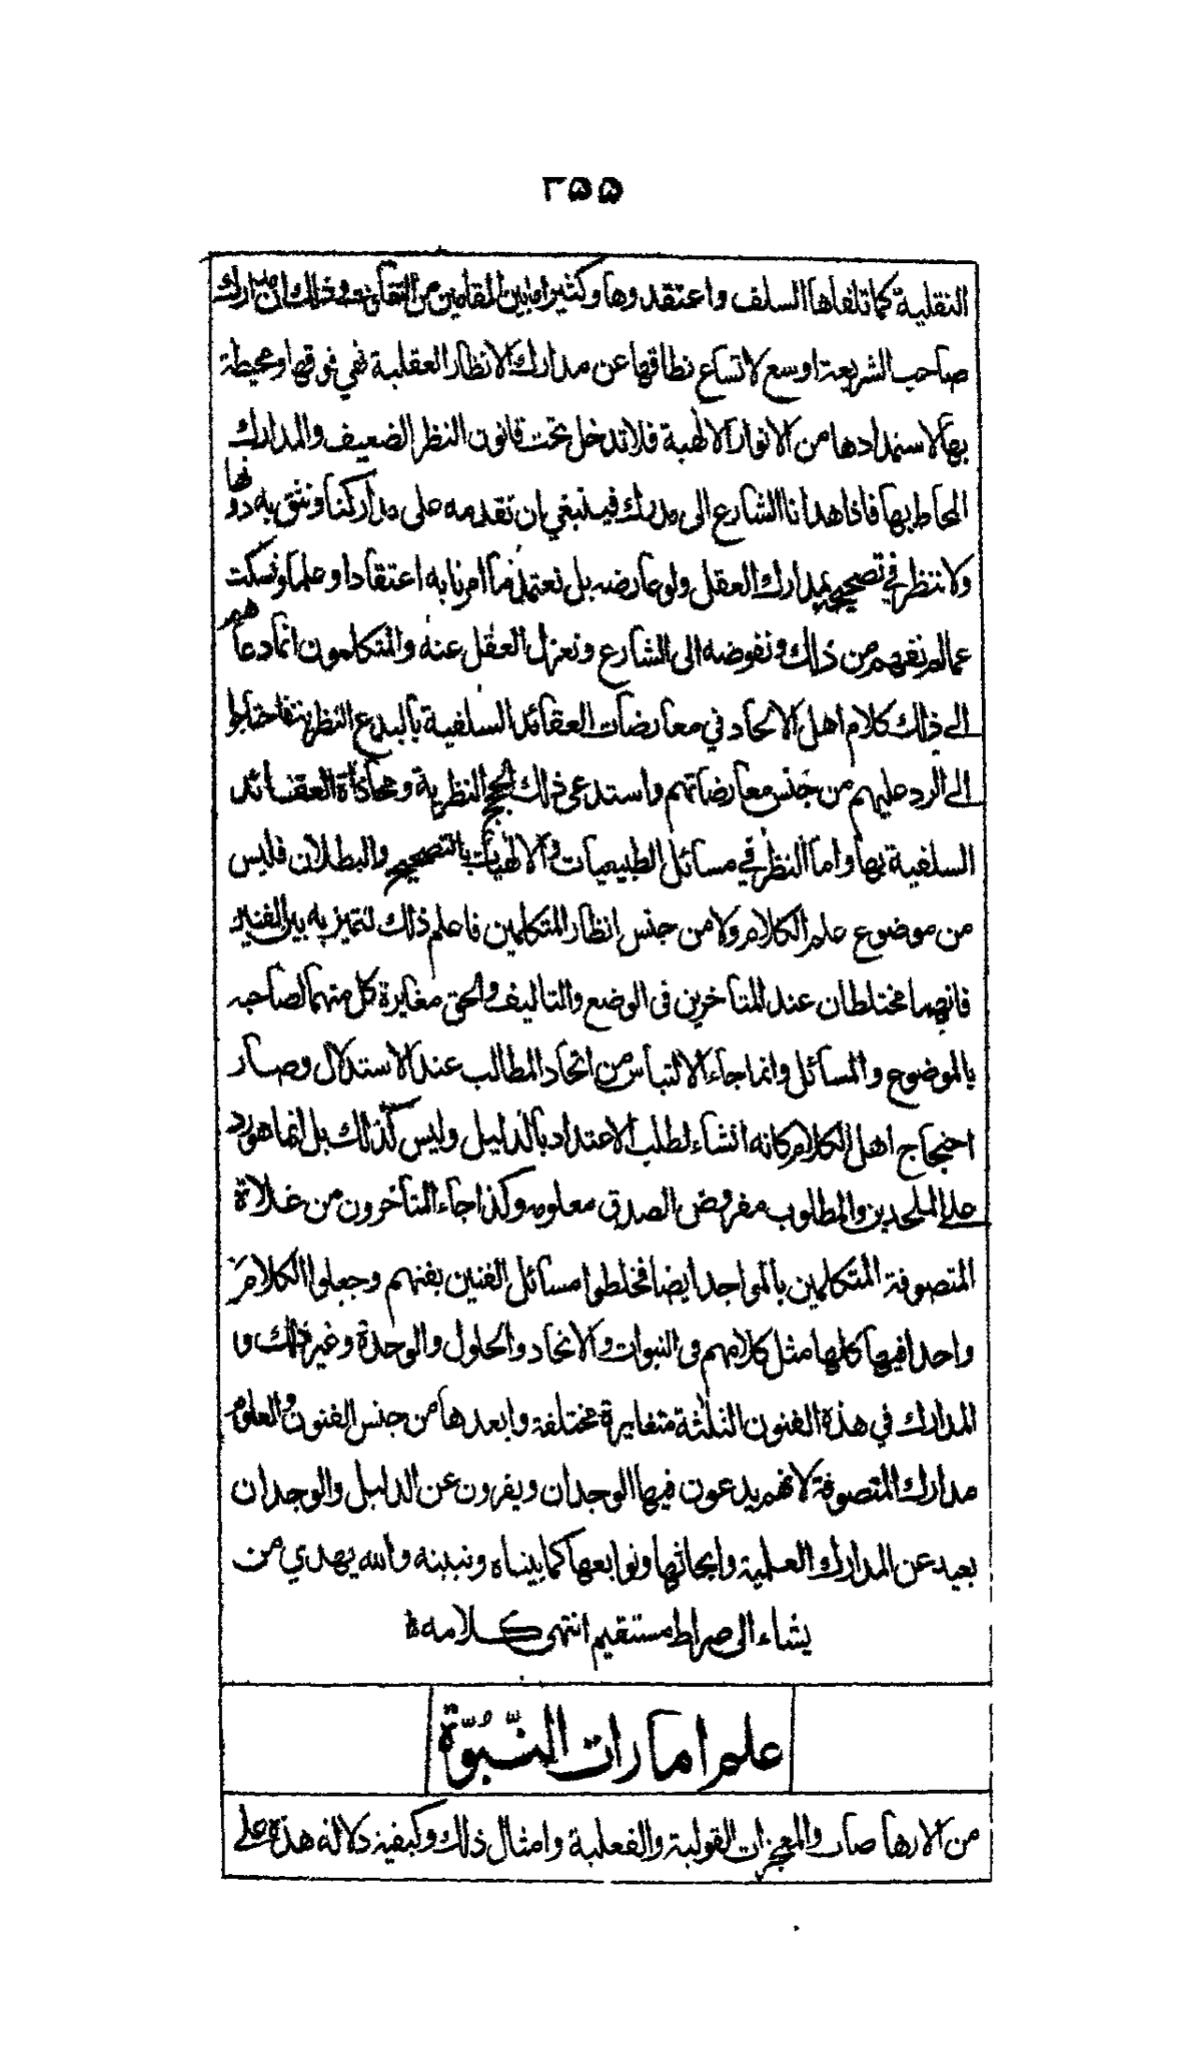 ٢٥٥
النقلية كما تلقاها السلف واعتقدوها وكثير ما بين المقامين من التفاوت وذلك ان مدارك
صاحب الشريعة اوسع لاتساع نطاقها عن مدارك الانظار العقلية فهي فوقها ومحيطة
بها لاستمدادها من الانوار الالهية فلا تدخل تحت قانون النظر الضعيف والمدارك
المحاط بها فاذا هدانا الشارع الى مدرك فينبغي ان نقدمه على مداركنا ونثق به دونها
ولا ننظر في تصحيحه بمدارك العقل ولو عارضه بل نعتمد ما امرنا به اعتقادا وعلما ونسكت
عما لم نفهم من ذلك ونفوضه الى الشارع ونعزل العقل عنه والمتكلمون انما دعاهم
الى ذلك كلام اهل الالحاد في معارضات العقائد السلفية بالبدع النظرية فاحتاجوا
الى الرد عليهم من جنس معارضاتهم واستدعى ذلك الحجج النظرية ومحاذاة العقائد
السلفية بها واما النظر في مسائل الطبيعيات والالهيات بالتصحيح والبطلان فليس
من موضوع علم الكلام ولا من جنس انظار المتكلمين فاعلم ذلك لتميز به بين الفنين
فانهما مختلطان عند المتاخرين في الوضع والتاليف والحق مغايرة كل منهما لصاحبه
بالموضوع والمسائل وانما جاء الالتباس من اتحاد المطالب عند الاستدلال وصار
احتجاج اهل الكلام كانه انشاء لطلب الاعتداد بالدليل وليس كذلك بل انما هو رد
على الملحدين والمطلوب مفروض الصدق معلومه وكذا جاء المتأخرون من غلاة
المتصوفة المتكلمين بالمواجد ايضا فخلطوا مسائل الفنين بفنهم وجعلوا الكلام
واحدا فيها كلها مثل كلامهم في النبوات والاتحاد والحلول والوحدة وغير ذلك و
المدارك في هذه الفنون الثلثة متغايرة مختلفة وابعدها من جنس الفنون والعلوم
مدارك المتصوفة لانهم يدعون فيها الوجدان ويفرون عن الدليل والوجدان
بعيد عن المدارك العلمية وابحاثها وتوابعها كما بيناه ونبينه والله يهدي من
يشاء الى صراط مستقيم انتهى كلامه
علم امارات النّبُوّة
من الارهاصات والمعجزات القولية والفعلية وامثال ذلك وكيفية دلالة هذه على